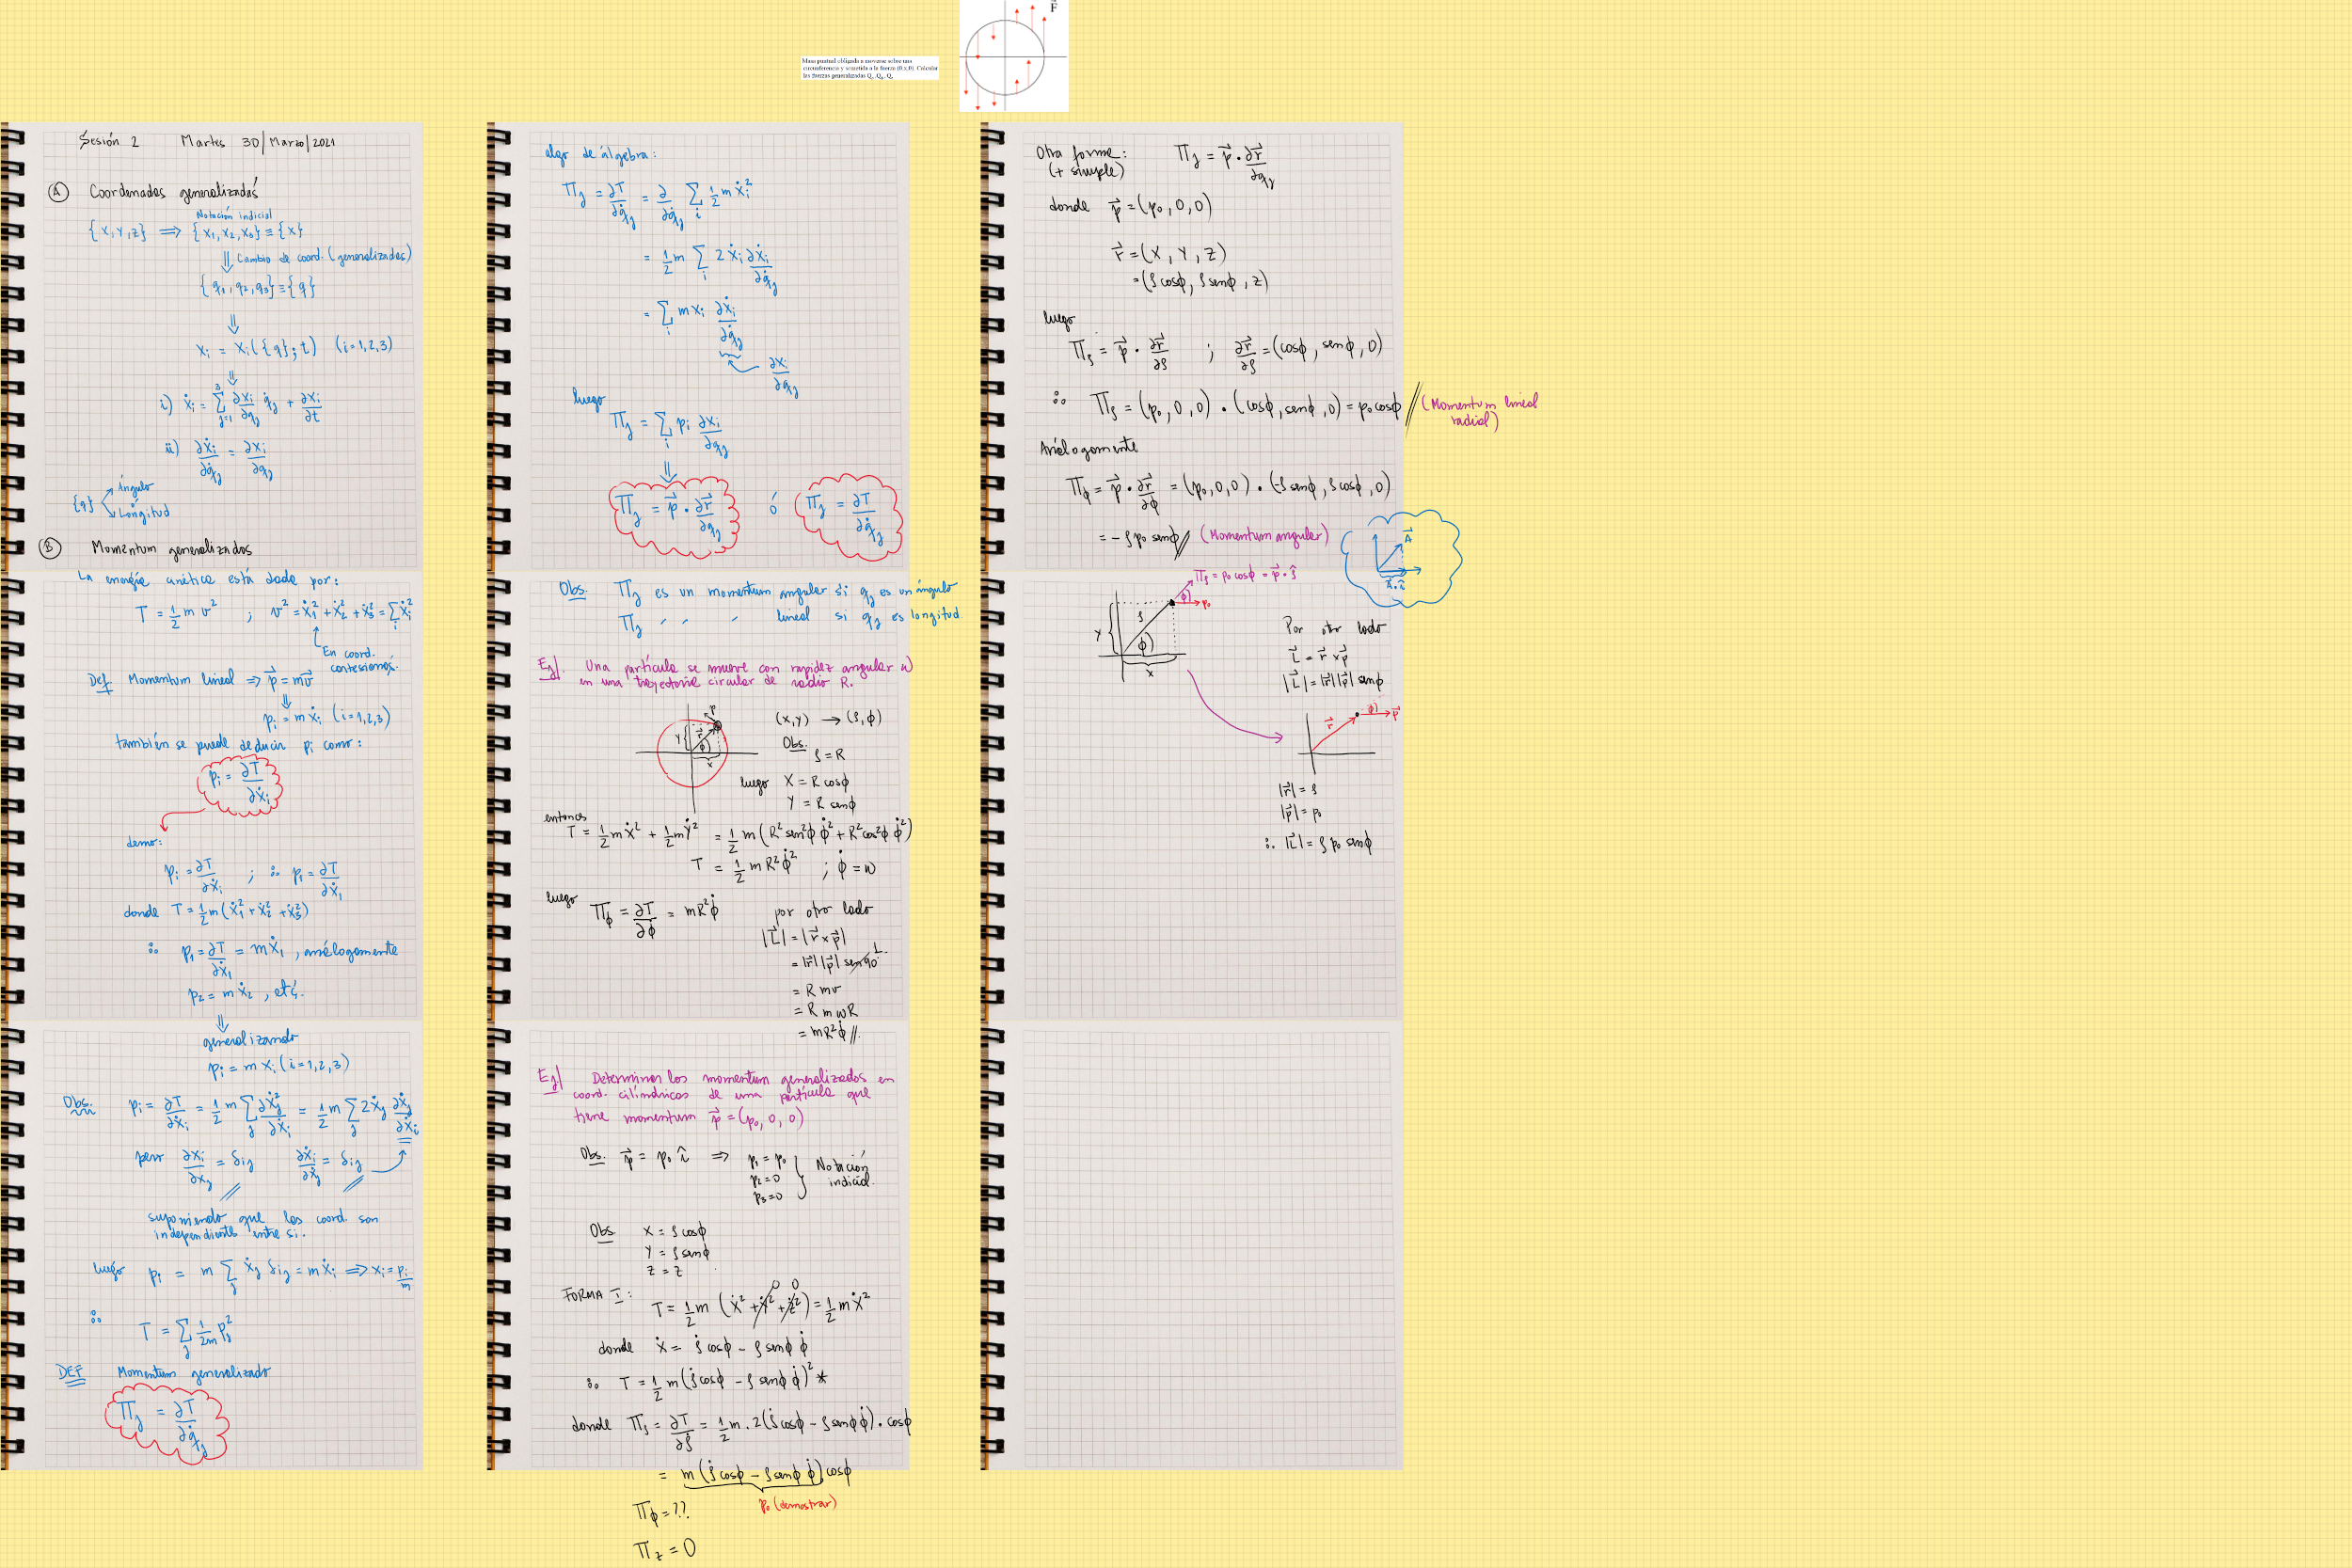 F
Masa puntual obligada a moverse sobre una
circunferencia y sometida a la fuerza (0,x,0). Calcular
las fuerzas generalizadas Qₓ, Q
Sesión 2 Martes 30/Marzo/2021
Ⓐ Coordenadas generalizadas
Notación indicial
{x,y,z} ⟹ {x₁,x₂,x₃} ≡ {x}
⇓ Cambio de coord. (generalizadas)
{q₁,q₂,q₃} ≡ {q}
⇓
xᵢ = xᵢ({q};t) (i=1,2,3)
⇓
i) ẋᵢ = Σ_{j=1}^{3} ∂xᵢ/∂qⱼ q̇ⱼ + ∂xᵢ/∂t
ii) ∂ẋᵢ/∂q̇ⱼ = ∂xᵢ/∂qⱼ
{q} Ángulo
Longitud
Ⓑ Momentum generalizados
La energía cinética está dada por:
T = 1/2 m v² ; v² = ẋ₁² + ẋ₂² + ẋ₃² = Σᵢ ẋᵢ²
En coord.
cartesianas.
Def. Momentum lineal ⟹ p⃗ = mv⃗
⇓
pᵢ = m ẋᵢ (i=1,2,3)
también se puede deducir pᵢ como:
pᵢ = ∂T/∂ẋᵢ
demo:
pᵢ = ∂T/∂ẋᵢ ; ∴ p₁ = ∂T/∂ẋ₁
donde T = 1/2 m (ẋ₁² + ẋ₂² + ẋ₃²)
∴ p₁ = ∂T/∂ẋ₁ = m ẋ₁, análogamente
p₂ = m ẋ₂, etc.
⇓
generalizando
pᵢ = m xᵢ (i=1,2,3)
Obs. pᵢ = ∂T/∂ẋᵢ = 1/2 m Σⱼ ∂ẋⱼ²/∂ẋᵢ = 1/2 m Σⱼ 2ẋⱼ ∂ẋⱼ/∂ẋᵢ
pero ∂xᵢ/∂xⱼ = δᵢⱼ ∂ẋᵢ/∂ẋⱼ = δᵢⱼ
suponiendo que las coord. son
independientes entre si.
luego pᵢ = m Σⱼ ẋⱼ δᵢⱼ = m ẋᵢ ⟹ xᵢ = pᵢ/m
∴ T = Σⱼ 1/2m pⱼ²
DEF Momentum generalizado
Πⱼ = ∂T/∂q̇ⱼ
algo de álgebra:
Πⱼ = ∂T/∂q̇ⱼ = ∂/∂q̇ⱼ Σᵢ 1/2 m ẋᵢ²
= 1/2 m Σᵢ 2 ẋᵢ ∂ẋᵢ/∂q̇ⱼ
= Σᵢ m xᵢ ∂ẋᵢ/∂q̇ⱼ
∂xᵢ/∂qⱼ
luego
Πⱼ = Σᵢ pᵢ ∂xᵢ/∂qⱼ
⇓
Πⱼ = p⃗ · ∂r⃗/∂qⱼ ó Πⱼ = ∂T/∂q̇ⱼ
Obs. Πⱼ es un momentum angular si qⱼ es un ángulo
Πⱼ " " " lineal si qⱼ es longitud.
Ej|. Una partícula se mueve con rapidez angular ω
en una trayectoria circular de radio R.
p⃗
r⃗
y
ϕ
x
(x,y) → (ρ,ϕ)
Obs.
ρ = R
luego x = R cosϕ
y = R senϕ
entonces
T = 1/2 mẋ² + 1/2 mẏ² = 1/2 m (R² sen²ϕ ϕ̇² + R² cos²ϕ ϕ̇²)
T = 1/2 m R² ϕ̇² ; ϕ̇ = ω
luego
Π_ϕ = ∂T/∂ϕ̇ = mR²ϕ̇
por otro lado
|L⃗| = |r⃗ × p⃗|
= |r⃗| |p⃗| sen90 1
= R mv
= R m ωR
= mR²ϕ̇ //.
Ej| Determinar los momentum generalizados en
coord. cilíndricas de una partícula que
tiene momentum p⃗ = (p₀, 0, 0)
Obs. p⃗ = p₀ î ⟹ p₁ = p₀
p₂ = 0
p₃ = 0
Notación
indicial.
Obs x = ρ cosϕ
y = ρ senϕ
z = z
FORMA I: T = 1/2 m (ẋ² + ẏ² 0 + ż² 0) = 1/2 m ẋ²
donde ẋ = ρ̇ cosϕ − ρ senϕ ϕ̇
∴ T = 1/2 m (ρ̇ cosϕ − ρ senϕ ϕ̇)² *
donde Π_ρ = ∂T/∂ρ̇ = 1/2 m · 2(ρ̇ cosϕ − ρ senϕ ϕ̇) · cosϕ
= m (ρ̇ cosϕ − ρ senϕ ϕ̇) cosϕ
p₀ (demostrar)
Π_ϕ = ??
Π_z = 0
Otra forma:
(+ simple)
Πⱼ = p⃗ · ∂r⃗/∂qⱼ
donde p⃗ = (p₀, 0, 0)
r⃗ = (x, y, z)
= (ρ cosϕ, ρ senϕ, z)
luego
Π_ρ = p⃗ · ∂r⃗/∂ρ ; ∂r⃗/∂ρ = (cosϕ, senϕ, 0)
∴ Π_ρ = (p₀, 0, 0) · (cosϕ, senϕ, 0) = p₀ cosϕ // (Momentum lineal
radial)
Análogamente
Π_ϕ = p⃗ · ∂r⃗/∂ϕ = (p₀,0,0) · (−ρ senϕ, ρ cosϕ, 0)
= − ρ p₀ senϕ // (Momentum angular)
A⃗
A⃗·î
Π_ρ = p₀ cosϕ = p⃗ · ρ̂
ϕ
p₀
ρ
y
ϕ
x
Por otro lado
L⃗ = r⃗ × p⃗
|L⃗| = |r⃗| |p⃗| senϕ
r⃗
ϕ
p⃗
|r⃗| = ρ
|p⃗| = p₀
∴ |L⃗| = ρ p₀ senϕ